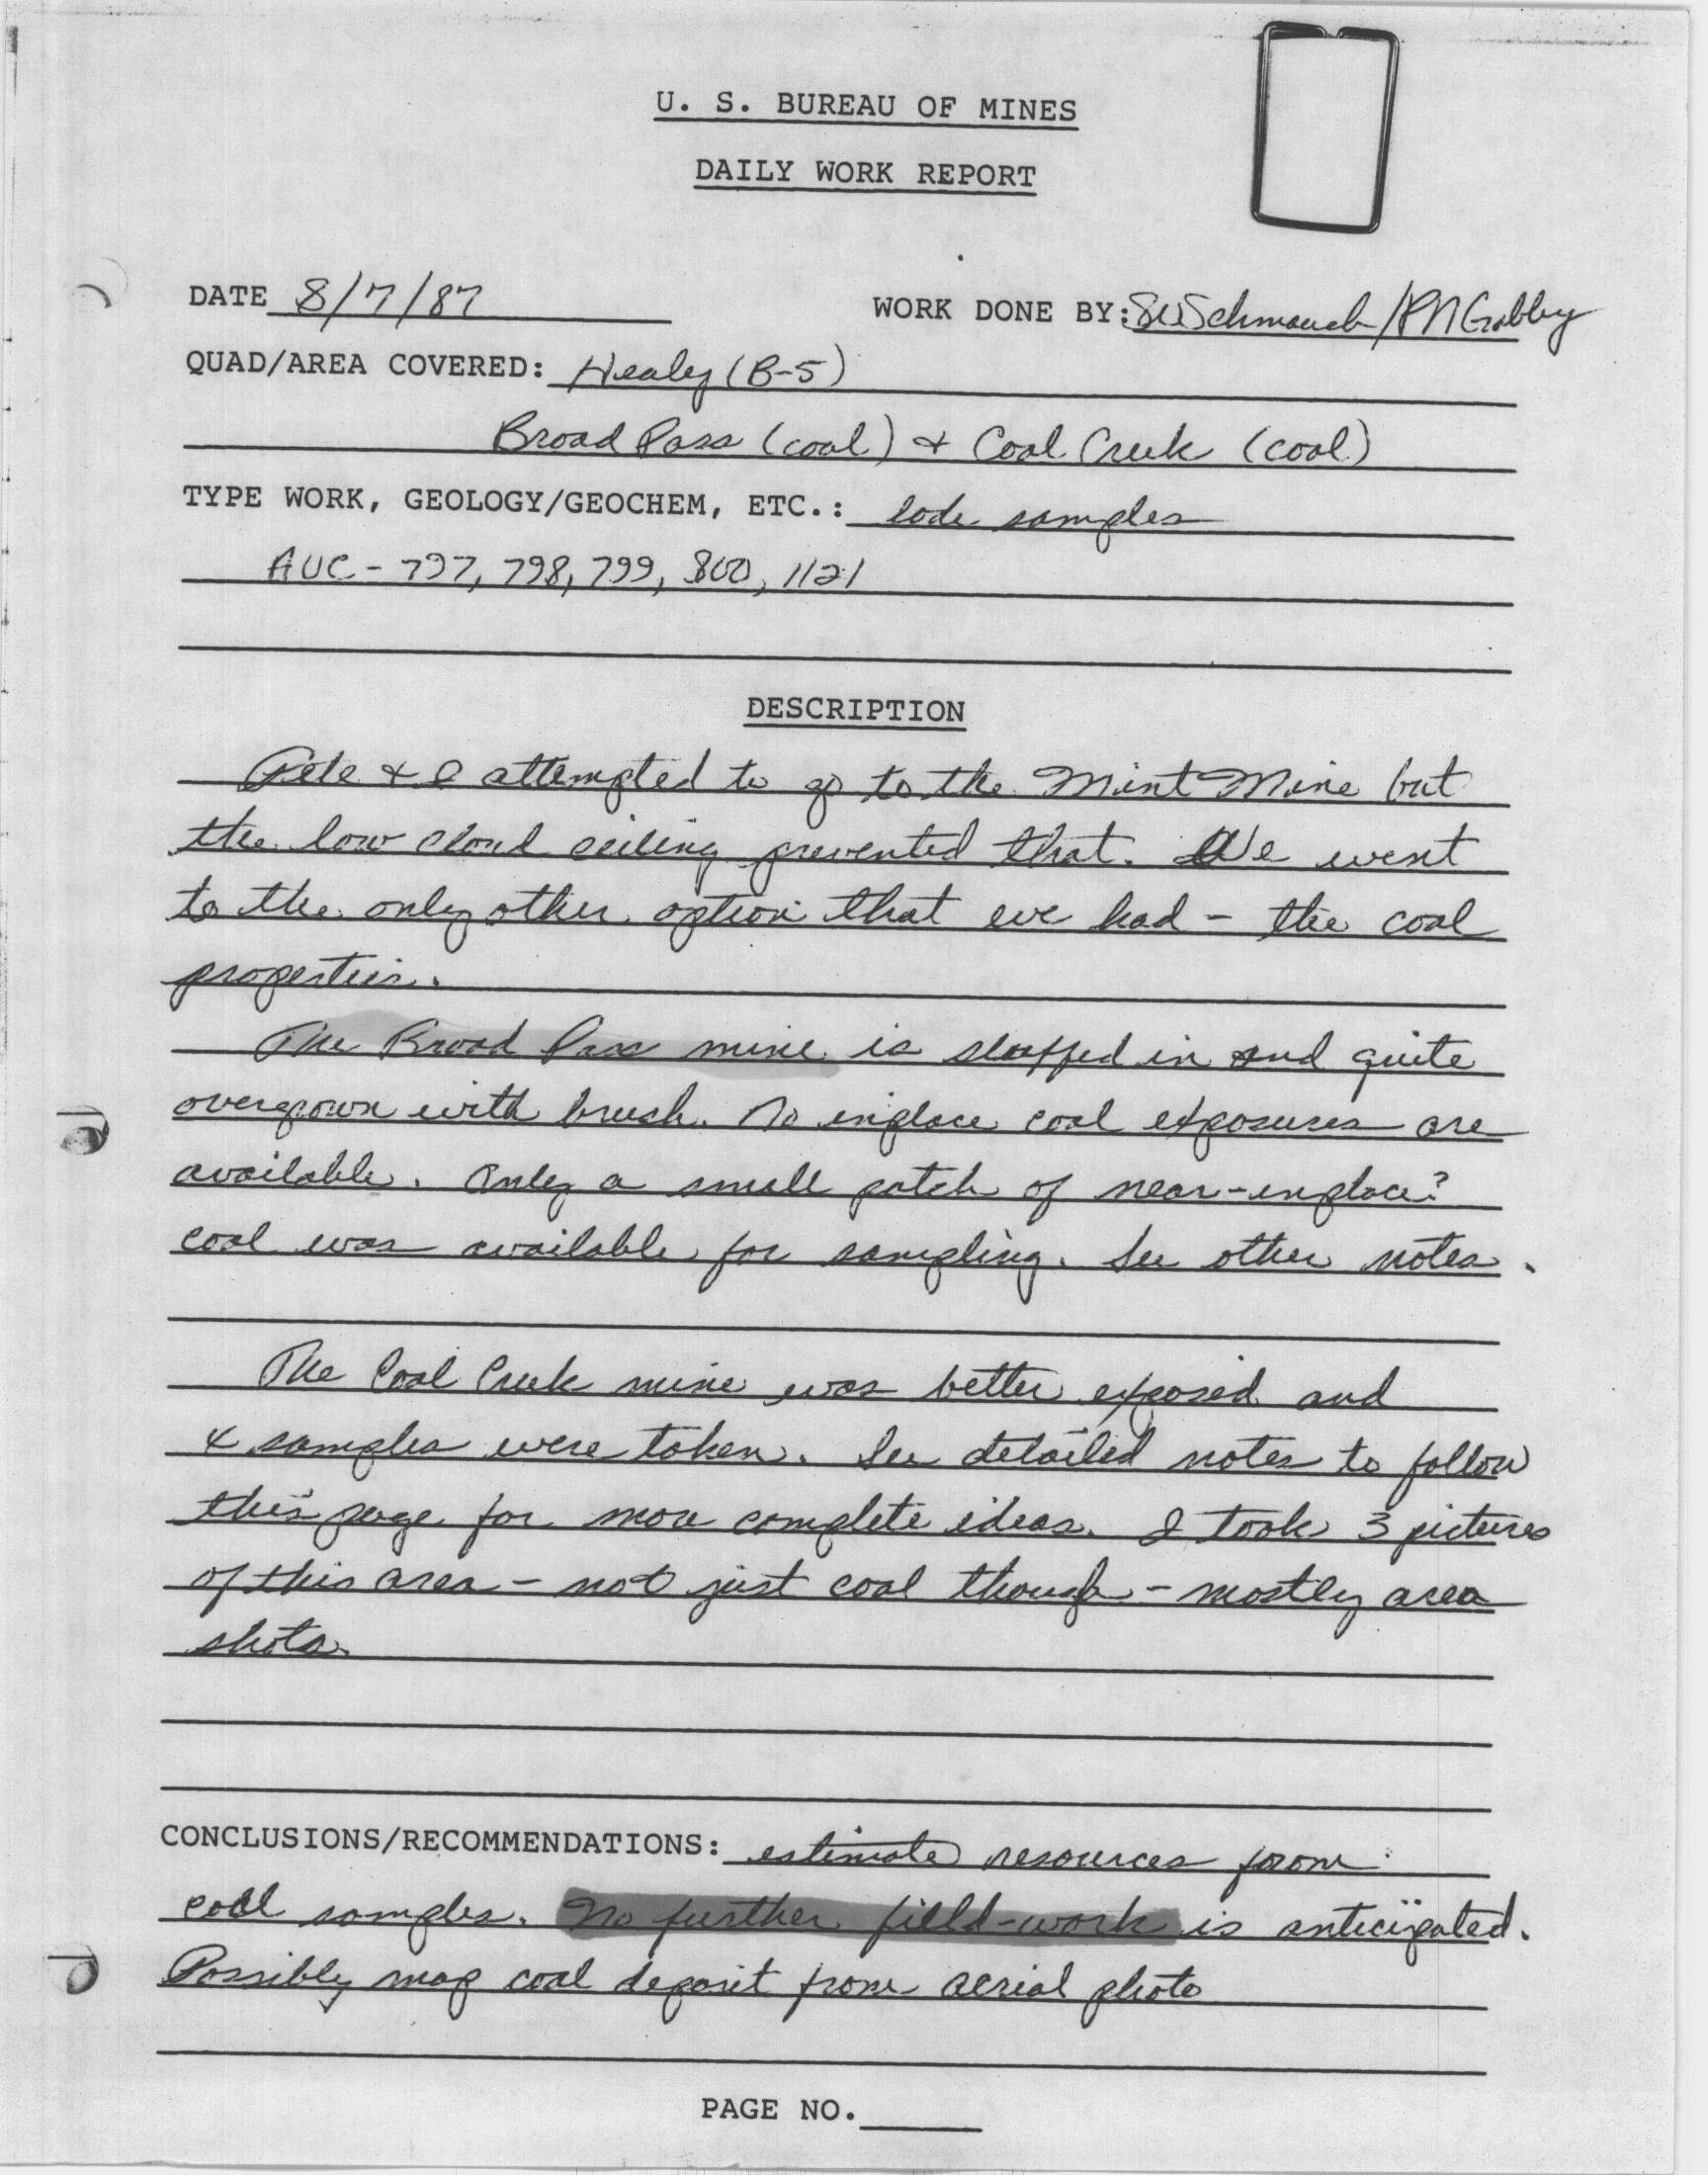 U. S. BUREAU OF MINES
DAILY WORK REPORT
DATE 8/7/87 WORK DONE BY: SWSchmauch/PNGabby
QUAD/AREA COVERED: Healey (B-5)
Broad Pass (coal) & Coal Creek (coal)
TYPE WORK, GEOLOGY/GEOCHEM, ETC.: lode samples
AUC - 797, 798, 799, 800, 1121
DESCRIPTION
Pete & I attempted to go to the Mint Mine but
the low cloud ceiling prevented that. We went
to the only other option that we had - the coal
properties.
The Broad Pass mine is sloffed in and quite
overgrown with brush. No inplace coal exposures are
available. Only a small patch of near-inplace?
coal was available for sampling. See other notes.
The Coal Creek mine was better exposed and
4 samples were taken. See detailed notes to follow
this page for more complete ideas. I took 3 pictures
of this area - not just coal though - mostly area
shots.
CONCLUSIONS/RECOMMENDATIONS: estimate resources from
coal samples. No further field-work is anticipated.
Possibly map coal deposit from aerial photo
PAGE NO.